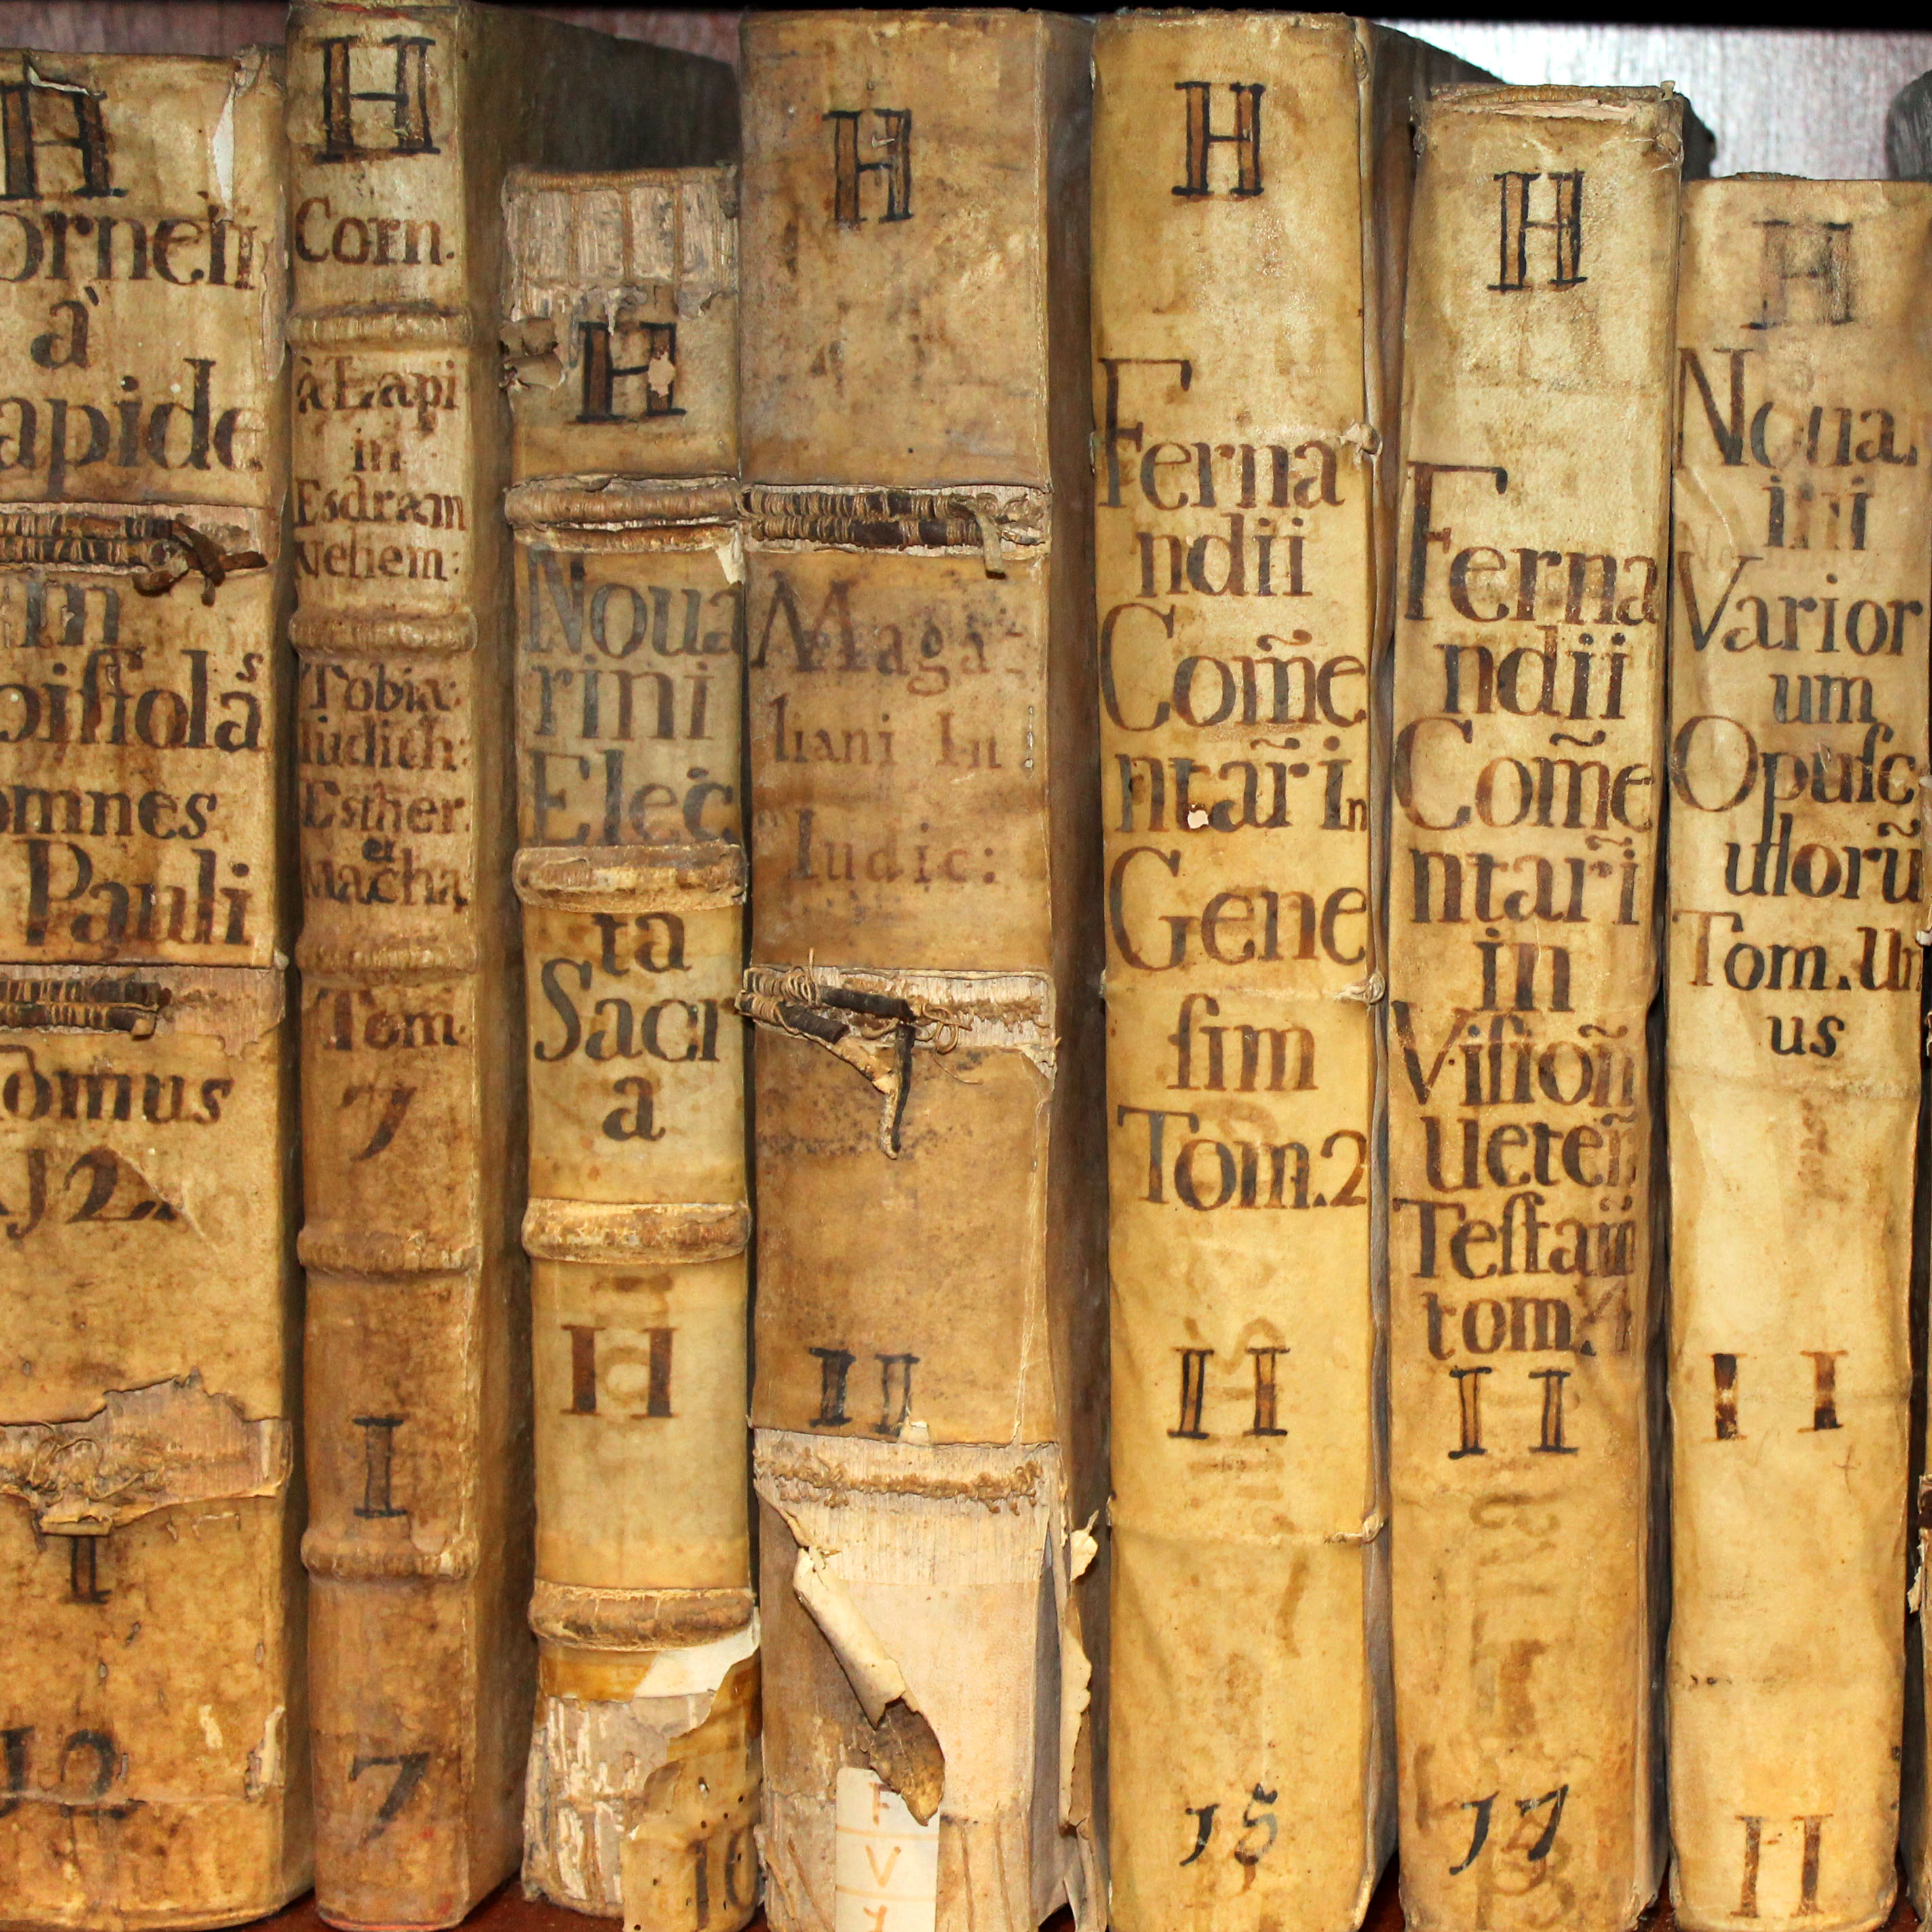 H
orneli
à
apide
in
pistolās
omnes
Pauli
omus
12.
I
12
H
Corn.
à Lapi
in
Esdram
Nehem:
Tobiæ
Iudith:
Esther.
et
Macha
Tom.
7
I
7
H
Noua
rini
Elec
ta
Sacr
a
II
10
H
Maga
liani In
Iudic:
II
F
V
H
Ferna
ndii
Com̃e
ntar̃i In
Gene
ſim
Tom.2
II
15
H
Ferna
ndii
Com̃e
ntar̃i
in
Viſioñ
ueter̃
Teſtam̃
tom.
II
17
H
Noua
rini
Varior
um
Opuſc
ulorũ
Tom.Un
us
II
II